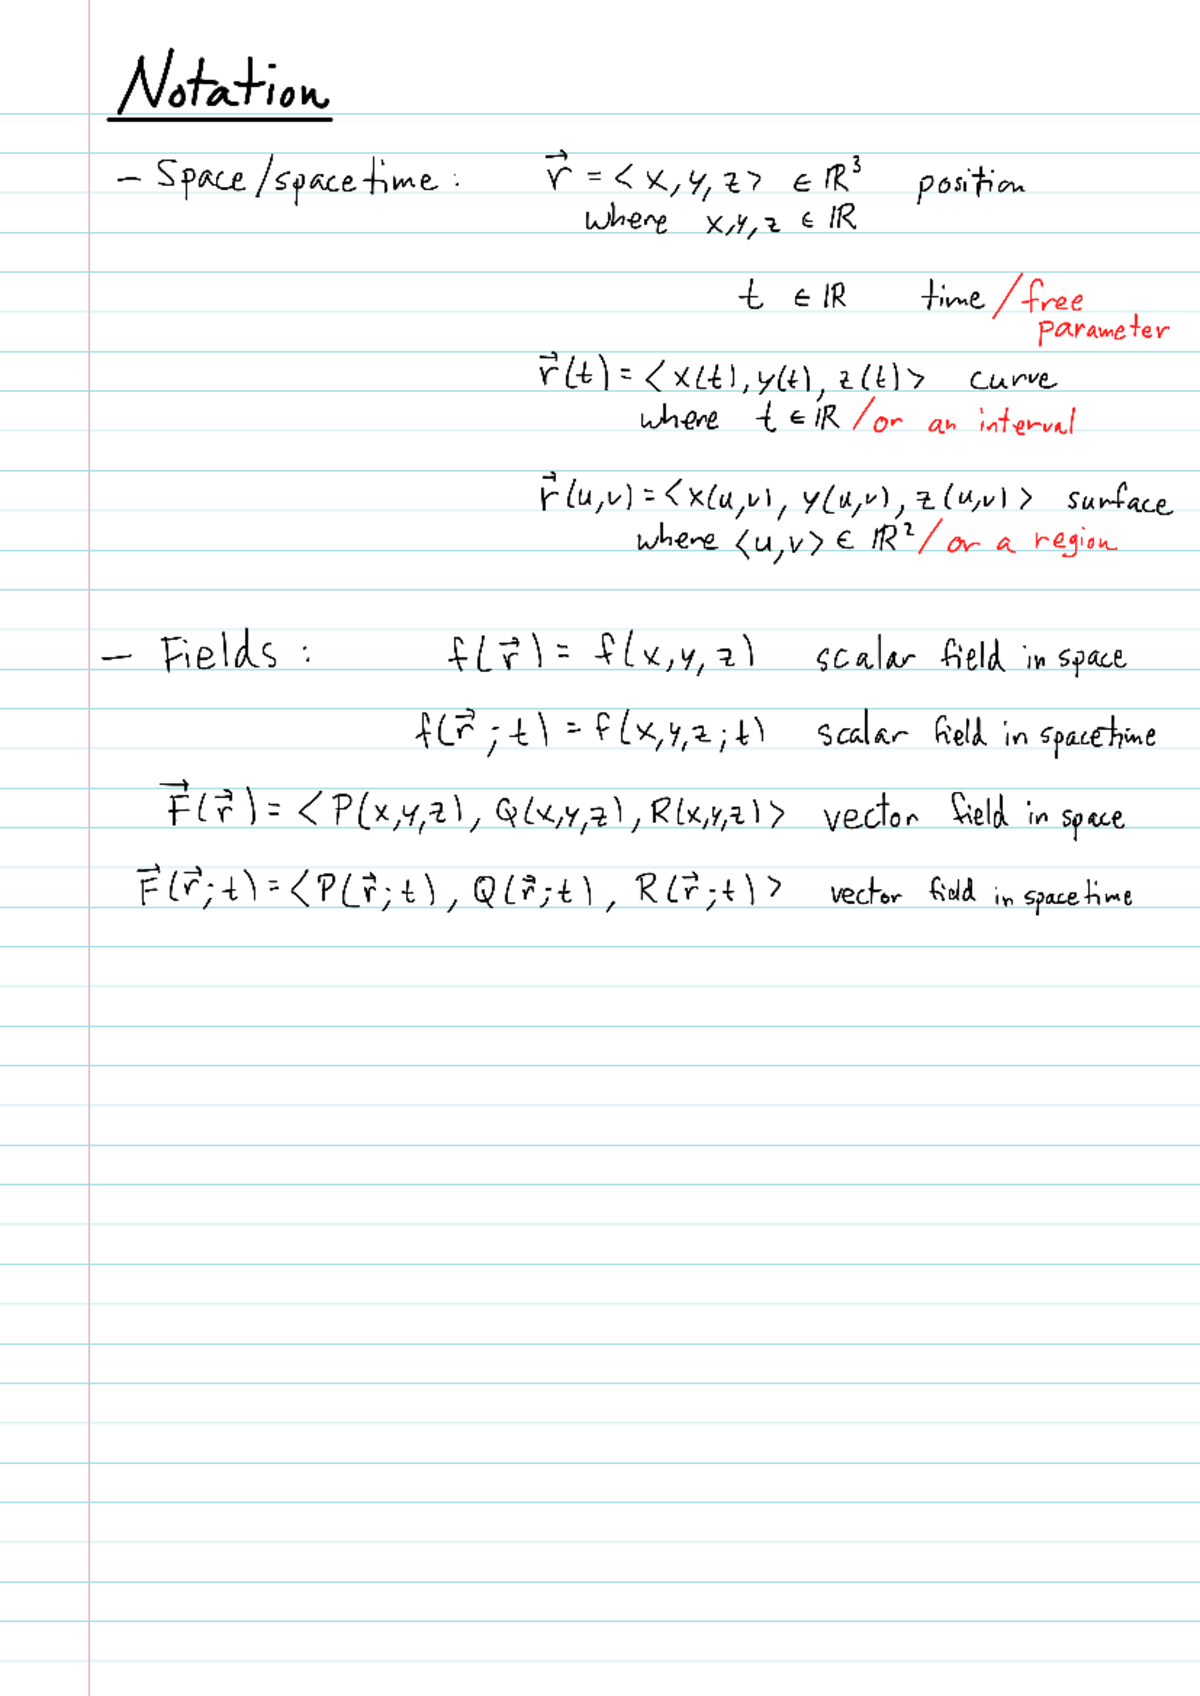 Notation
- Space/spacetime: r⃗ = <x,y,z> ∈ ℝ³ position
where x,y,z ∈ ℝ
t ∈ ℝ time/free
parameter
r⃗(t) = <x(t), y(t), z(t)> curve
where t ∈ ℝ/or an interval
r⃗(u,v) = <x(u,v), y(u,v), z(u,v)> surface
where <u,v> ∈ ℝ²/or a region
- Fields: f(r⃗) = f(x,y,z) scalar field in space
f(r⃗;t) = f(x,y,z;t) scalar field in spacetime
F⃗(r⃗) = <P(x,y,z), Q(x,y,z), R(x,y,z)> vector field in space
F⃗(r⃗;t) = <P(r⃗;t), Q(r⃗;t), R(r⃗;t)> vector field in spacetime